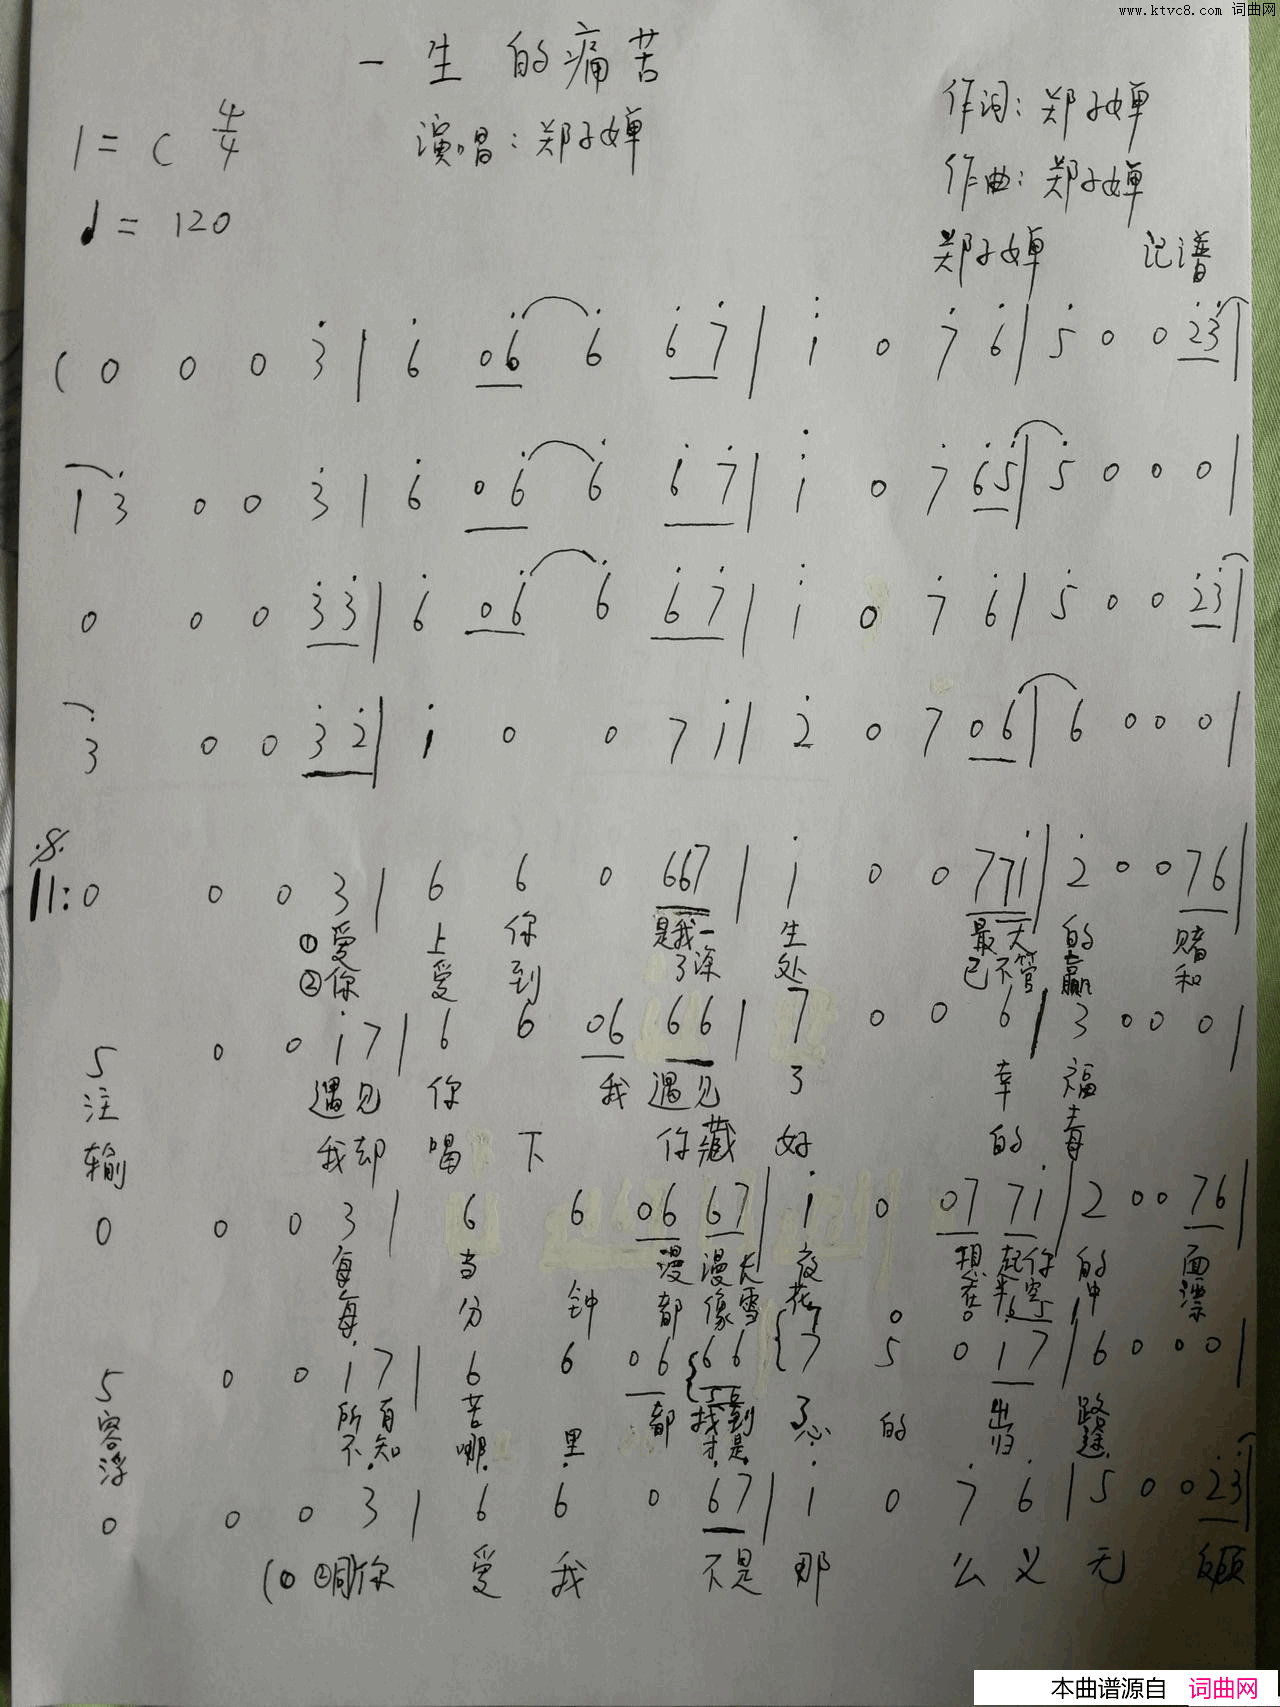 www.ktvc8.com 词曲网
一生的痛苦
1=C 4/4
演唱:郑子婵
作词:郑子婵
♩=120
作曲:郑子婵
郑子婵 记谱
( 0 0 0 3̇ | 6̇ 06̇ 6̇ 6̇7̇ | i̇ 0 7̇ 6̇ | 5̇ 0 0 2̇3̇ |
| 3̇ 0 0 3̇ | 6̇ 06̇ 6̇ 6̇7̇ | i̇ 0 7̇ 6̇5̇ | 5̇ 0 0 0 |
0 0 0 3̇3̇ | 6̇ 06̇ 6̇ 6̇7̇ | i̇ 0 7̇ 6̇ | 5̇ 0 0 2̇3̇ |
3̇ 0 0 3̇2̇ | i 0 0 7 i | 2̇ 0 7 06 | 6 0 0 0 |
||: 0 0 0 3 | 6 6 0 667 | i 0 0 77i | 2̇ 0 0 76 |
①爱 上 你 是我一 生 最大 的 赌
②你 爱 到 了深 处 已不管 赢 和
5 0 0 i7 | 6 6 06 66 | 7 0 0 6 | 3 0 0 0 |
注 遇见 你 我 遇见 了 幸 福
输 我却 喝 下 你藏 好 的 毒
0 0 0 3 | 6 6 06 67 | i 0 07 7i | 2 0 0 76 |
每 当 漫 漫大 夜 想 起你 的 面
每 分 钟 都 像雪 花 在 半空 中 漂
5 0 0 i7 | 6 6 06 66 | 7 5 0 17 | 6 0 0 0 |
容 所有 苦 都 找到 了 出 路
浮 不知 哪 里 才是 心 的 归 途
0 0 0 3 | 6 6 0 67 | i 0 7 6 | 5 0 0 2̇3̇ |
(① ②同)你 爱 我 不是 那 么 义 无 反顾
本曲谱源自 词曲网